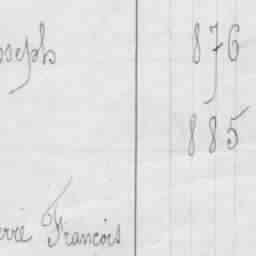 oseph 876
885
erre Francois